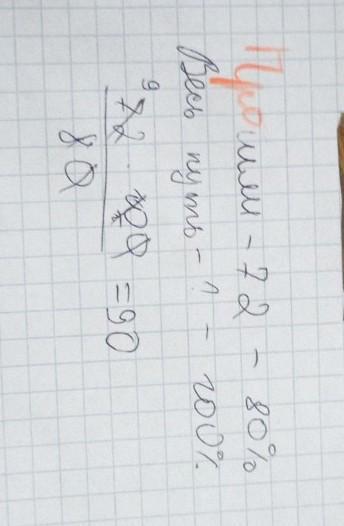 Прошли - 72 - 80%
Весь путь - ? - 100%
9
72 · 100 = 90
80